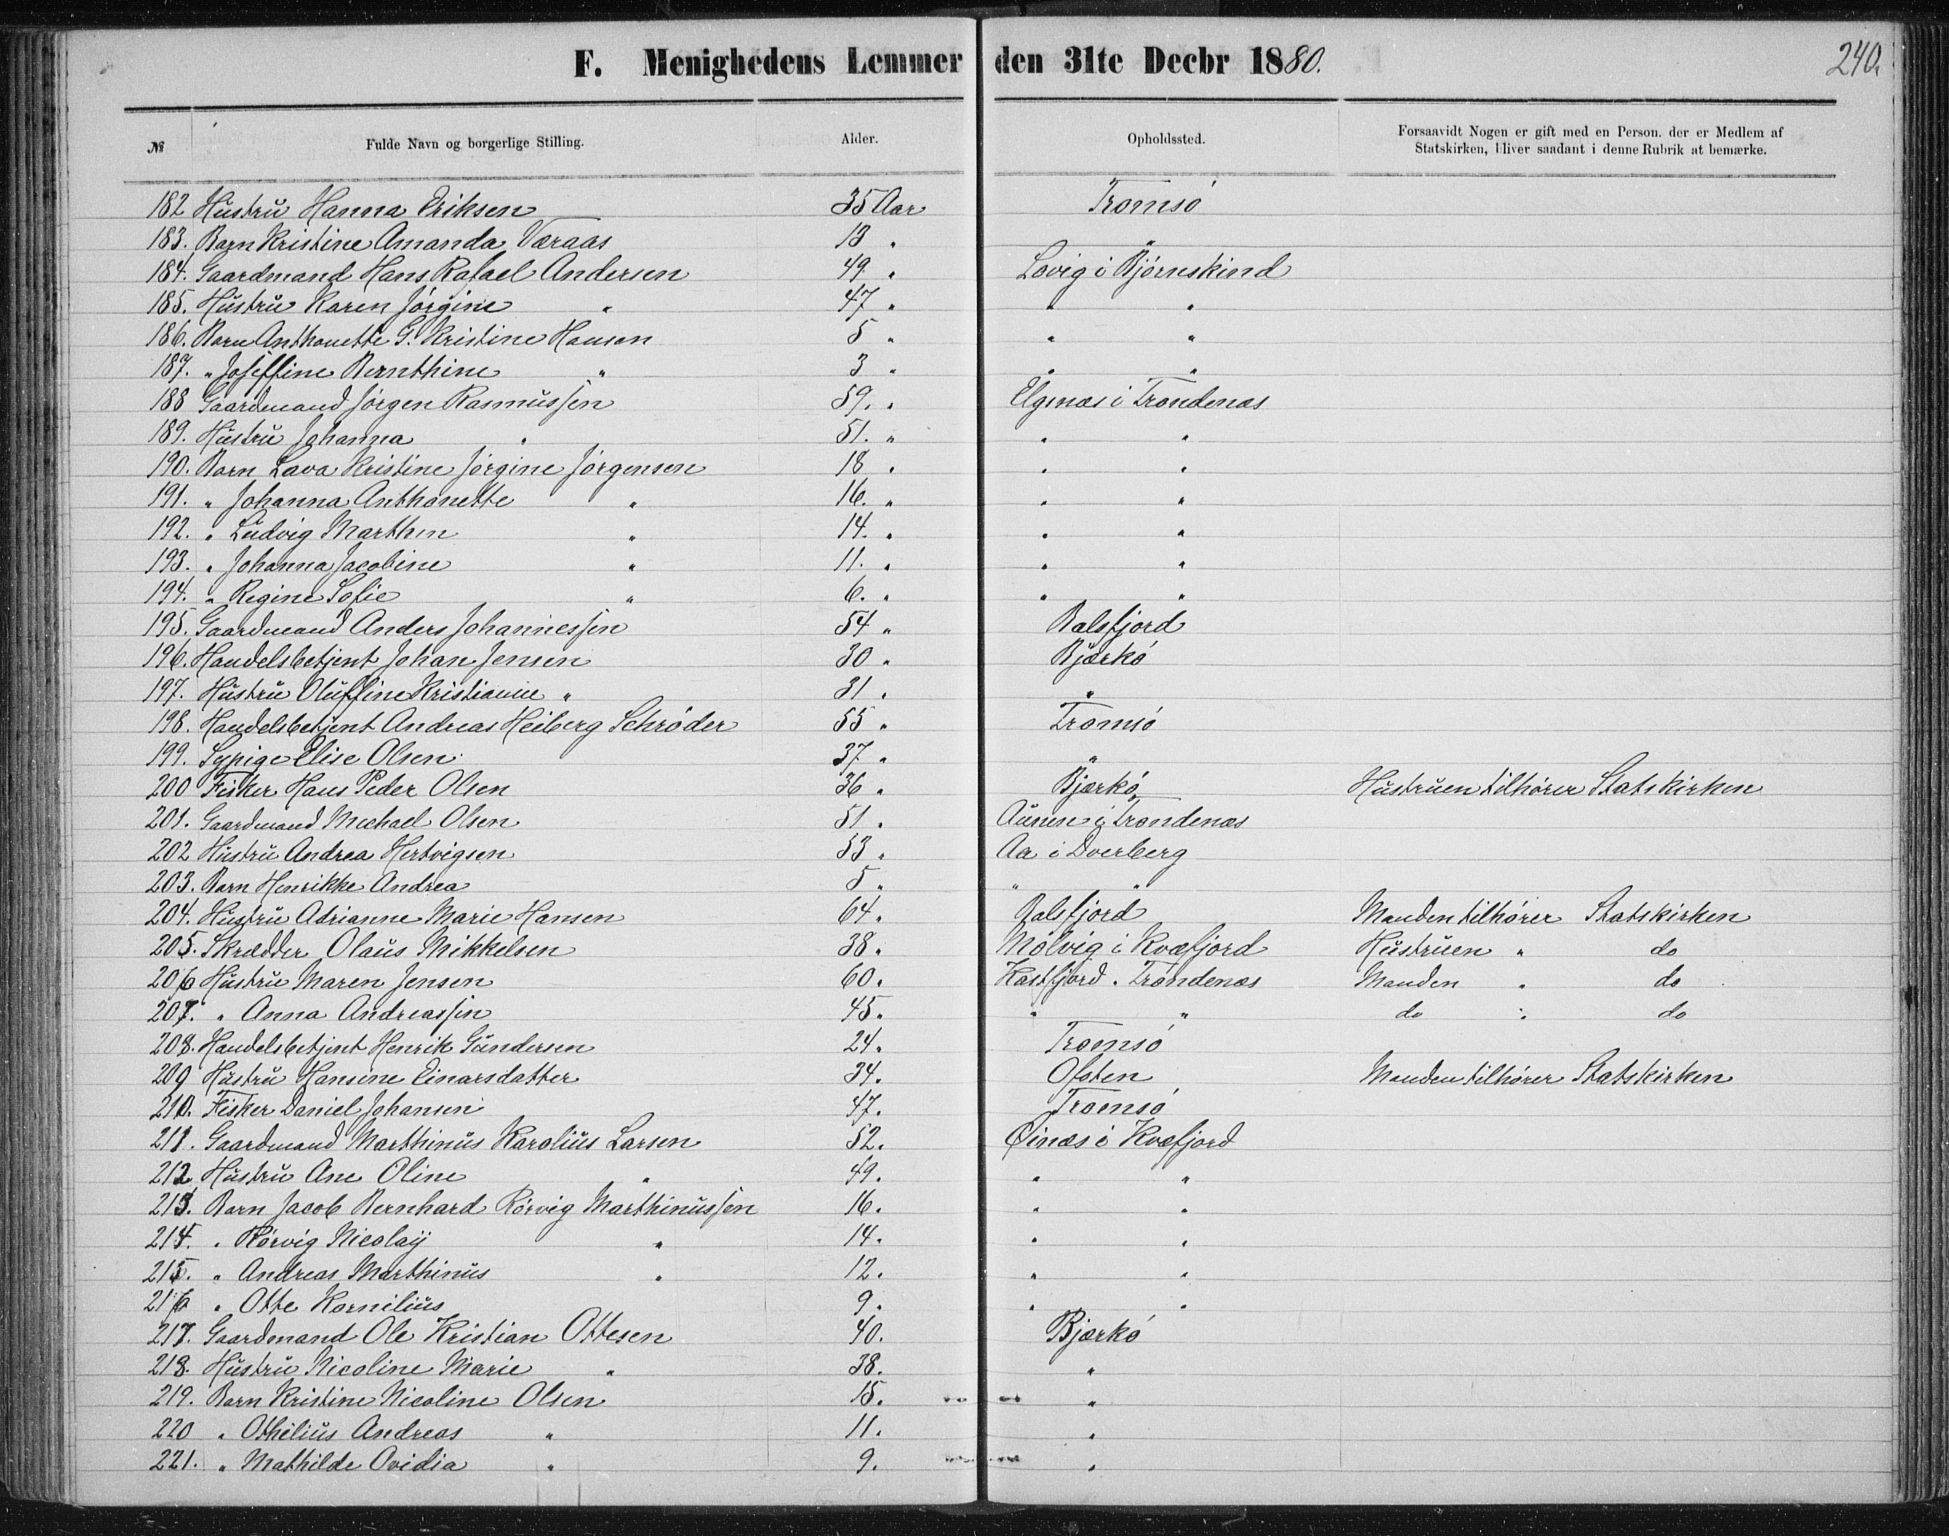 F. Menighedens Lemmer den 31te Decbr 1880. 240.
№ Fulde Navn og borgerlige Stilling. Alder. Opholdssted. Forsaavidt Nogen er gift med en Person, der er Medlem af
Statskirken, bliver saadant i denne Rubrik at bemærke.
182 Hustru Hanna Eriksen 35 Aar Tromsö
183. Barn Kristine Amanda Væraas 13 " "
184. Gaardmand Hans Rafael Andersen 49 " Lovig i Bjørnskind
185. Hustru Karen Jörgine " 47 " " "
186. Barn Anthonette G. Kristine Hansen 5 " " "
187. " Joseffine Bernthine " 3 " " "
188 Gaardmand Jörgen Rasmussen 59. " Elgenæs i Trondenæs
189. Hustru Johanna " 51. " " "
190. Barn Lava Kristine Jörgine Jörgensen 18 " " "
191. " Johanna Anthonette " 16. " " "
192. " Ludvig Marthin " 14. " " "
193. " Johanna Jacobine " 11. " " "
194. " Regine Sofie " 6. " " "
195. Gaardmand Anders Johannessen 54 " Balsfjord
196. Handelsbetjent Johan Jensen 30 " Bjarkö
197. Hustru Oluffine Kristianne " 31 " "
198. Handelsbetjent Andreas Heiberg Schröder 55 " Tromsö
199. Sypige Elise Olsen 37 " "
200 Fisker Hans Peder Olsen 36 " Bjarkö Hustruen tilhörer Statskirken
201. Gaardmand Michael Olsen 51 " Aunen i Trondenæs
202 Hustru Andrea Hertvigsen 53 " Aa i Dverberg
203. Barn Henrikke Andrea 5 " " "
204. Hustru Adrianne Marie Hansen 64 " Balsfjord Manden tilhörer Statskirken
205. Skrædder Olaus Mikkelsen 38 " Molvig i Kvæfjord Hustruen " do
206 Hustru Maren Jensen 60. Kasfjord " Trondenæs Manden " do
207. " Anna Andreassen 45 " " " do " do
208. Handelsbetjent Henrik Gundersen 24 " Tromsö
209 Hustru Hansine Einarsdatter 34. Ofoten Manden tilhörer Statskirken
210. Fisker Daniel Johansen 47. Tromsö
211. Gaardmand Marthinus Karolius Larsen 52. Öinæs i Kvæfjord
212 Hustru Ane Oline " 49. " "
213. Barn Jacob Bernhard Rörvig Marthinussen 16. " "
214. " Rörvig Nicolaij " 14. " "
215. " Andreas Marthinus " 12. " "
216 " Otte Kornilius 9. " "
217. Gaardmand Ole Kristian Ottesen 40. Bjarkö
218. Hustru Nicoline Marie " 38. "
219. Barn Kristine Nicoline Olsen 15. "
220 " Othilius Andreas " 11. "
221. " Mathilde Ovidia " 9. "